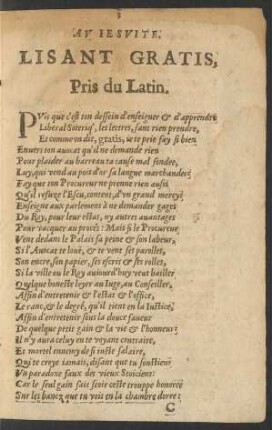 AV IESVITE,
LISANT GRATIS,
Pris du Latin.
PVis que c'est ton dessein d'enseigner & d'apprendre
Liberal les lettres, sans rien prendre,
Et comme on dit, gratis, ie te prie fay si bien
Enuers ton auocat qu'il ne demande rien
Pour plaider au barreau ta cause mal fondee,
Luy, qui vend au pois d'or sa langue marchandee:
Fay que ton Procureur ne prenne rien aussi
Qu'il refuze l'Escu, content, d'vn grand mercy:
Enseigne aux parlements à ne demander gages
Du Roy, pour leur estat, ny autres auantages
Pour vacquer au procés: Mais si le Procureur
Vent dedans le Palais sa peine & son labeur,
Si l'Auocat te loüe, & te vent ses parolles,
Son encre, son papier, ses escris & ses rolles,
Si la ville ou le Roy auiourd'huy veut bailler
Quelque honeste loyer au Iuge, au Conseiller,
Affin d'entretenir & l'estat & l'office,
Le ranc, & le degré, qu'il tient en la Iustice,
Affin d'entretenir sous la douce saueur
De quelque petit gain & la vie & l'honneur:
Il n'y aura celuy en te voyant contraire,
Et mortel ennemy de si iuste salaire,
Qui te croye iamais, disant que tu
Vn paradoxe faux des vieux Stoiciens:
Car le seul gain fait seoir ceste trouppe honoree
Sur les bancz que tu vois en la chambre doree:
C